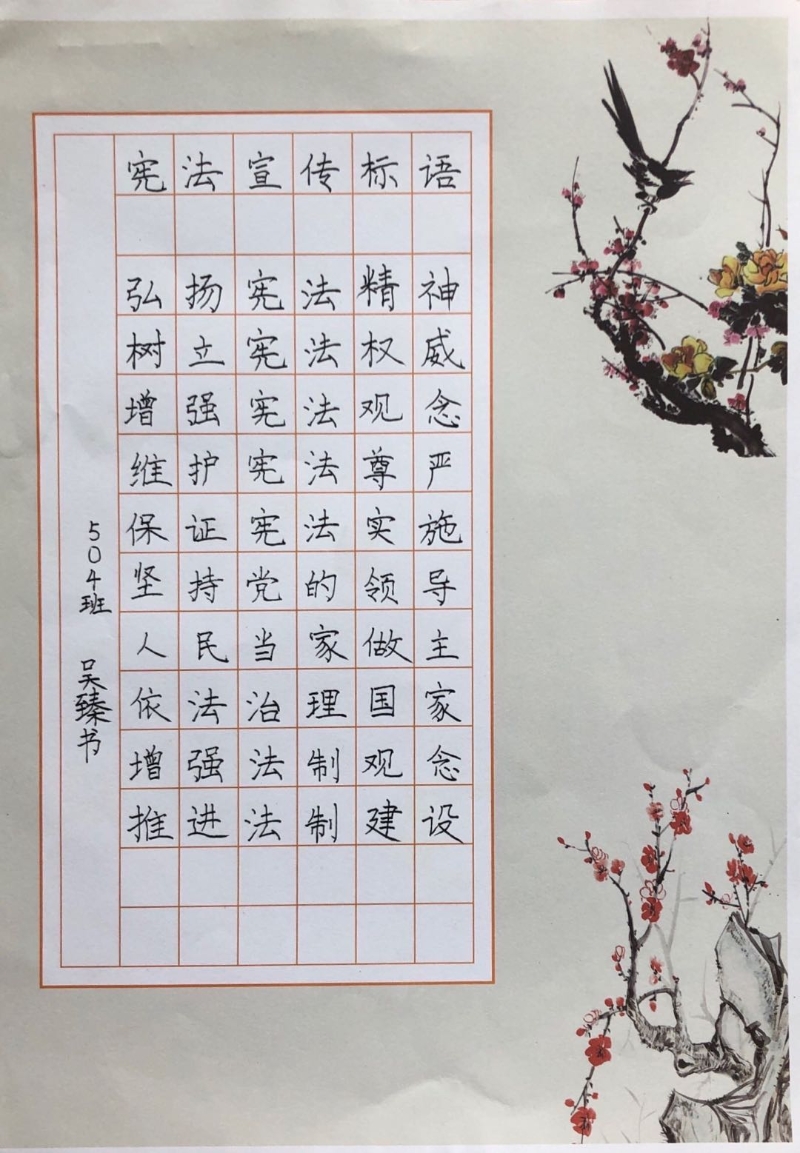 宪法宣传标语
弘扬宪法精神
树立宪法权威
增强宪法观念
维护宪法尊严
保证宪法实施
坚持党的领导
人民当家做主
依法治理国家
增强法制观念
推进法制建设
504班 吴臻书